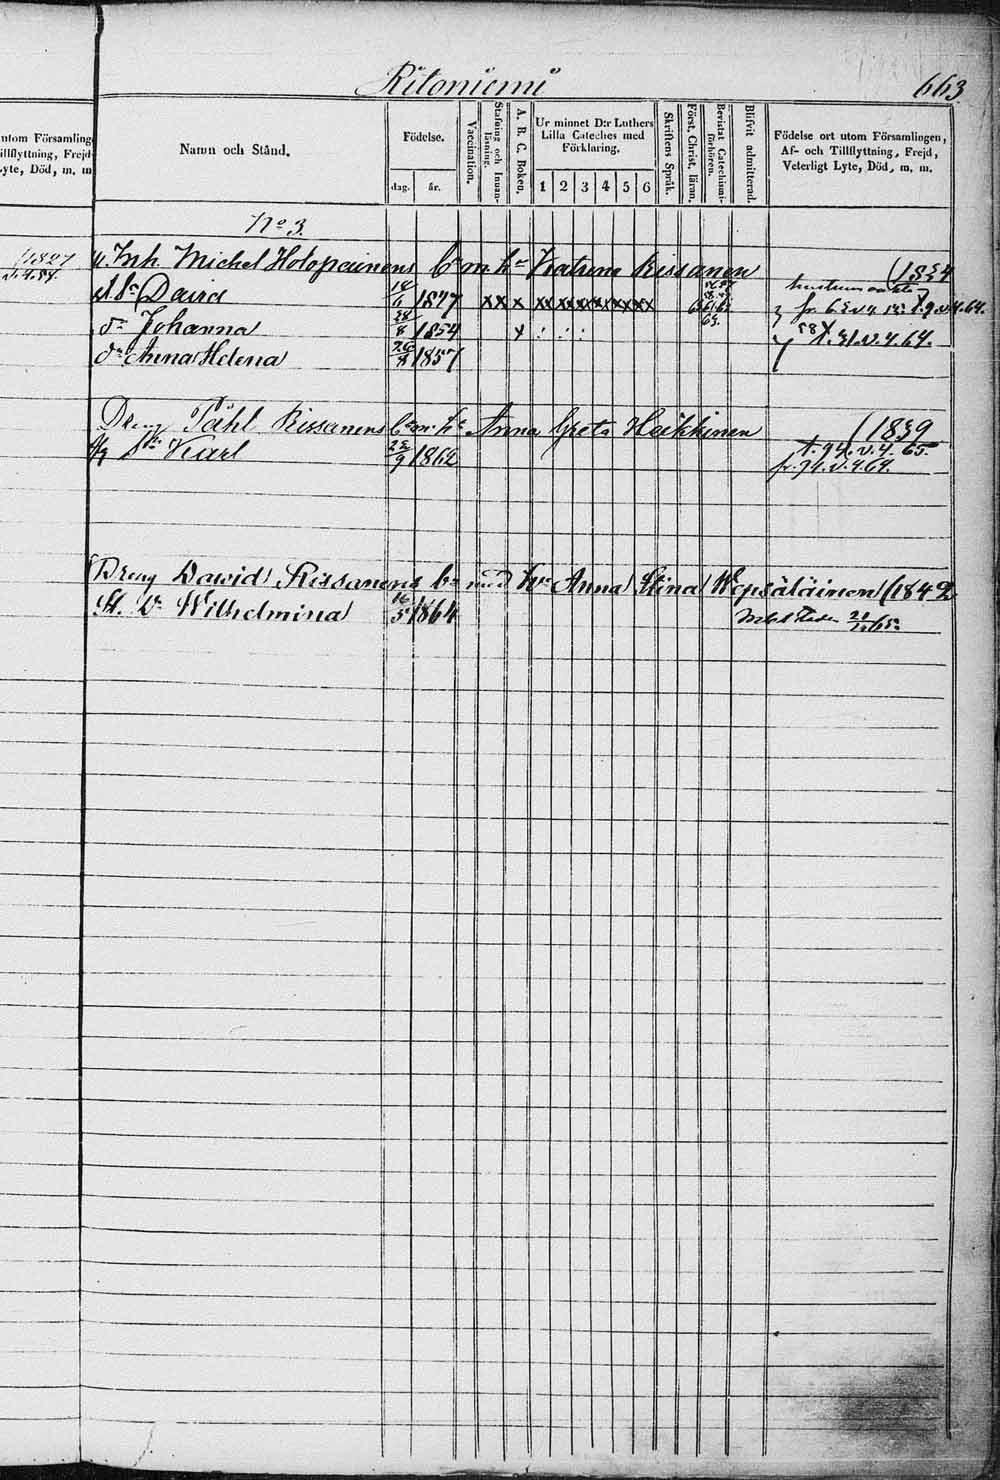 Ritoniemi
663.
utom Församling
illflyttning, Frejd
yte, Död, m. m
Namn och Stånd.
Födelse.
dag. år.
Vaccination.
Stafning och Innan-läsning.
A. B. C. Boken.
Ur minnet D:r Luthers
Lilla Cateches med
Förklaring.
1 2 3 4 5 6
Skriftens Språk.
Först. Christ. läran.
Bevistat Catechismi-förhören.
Blifvit admitterad.
Födelse ort utom Församlingen,
Af- och Tillflyttning, Frejd,
Veterligt Lyte, Död, m. m.
No 3.
1827
Inh. Michel Holopainens Bn m. hu Katrina Rissanen
David 18/6 1847 x x x x x x x x x
Johanna 28/8 1854 x : : :
dr Anna Helena 26/8 1857
t. 31. v. 4. 64.
Dreng Påhl Rissanens Bn m. hu Anna Greta Heikkinen (1839
Karl 1862 t. 94. v. 4. 65.
fr. 94. v. 4. 64.
Dreng Dawid Rissanens bn med hu Anna Stina Wepsäläinen (1842
Wilhelmina 16/5 1864